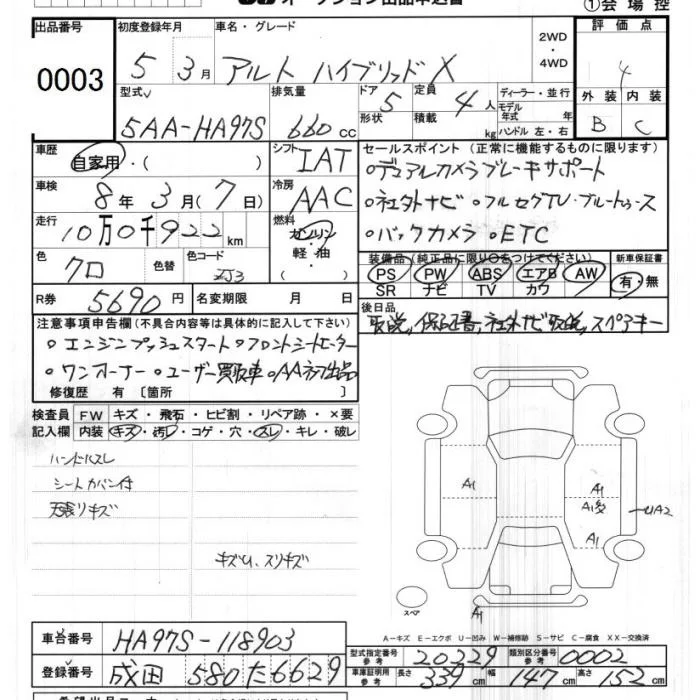 オークション出品申込書
①会場控
出品番号
0003
初度登録年月
5 3月
車名・グレード
アルト ハイブリッドX
2WD
・
4WD
評価点
4
外装 内装
B C
型式
5AA-HA97S
排気量
660cc
ドア
5
形状
定員
4人
積載
kg
ディーラー・並行
モデル
年式 年
ハンドル 左・右
車歴
自家用・( )
シフト
IAT
車検
8年3月(7日)
冷房
AAC
走行
10万0千922km
燃料
ガソリン
軽・油
色
クロ
色替
色コード
ZJ3
R券
5690円
名変期限 月 日
セールスポイント(正常に機能するものに限る)
○デュアルカメラブレーキサポート
○社外ナビ ○フルセグTV・ブルートゥース
○バックカメラ ○ETC
装備品(純正品に限り〇をつけてください)
PS PW ABS エアB AW
SR ナビ TV カワ
新車保証書
有・無
後日品
取説,保証書,社外ナビ取説,スペアキー
注意事項申告欄(不具合内容等は具体的に記入して下さい)
○エンジンプッシュスタート ○フロントシートヒーター
○ワンオーナー ○ユーザー買取車 ○AA初出品
修復歴 有[箇所 ]
検査員
記入欄
FW キズ・飛石・ヒビ割・リペア跡・×要
内装 キズ・汚レ・コゲ・穴・スレ・キレ・破レ
ハンドルスレ
シートカバー付
天張リキズ
キズU、スリキズ
A1
A1
A1
UA2
A1
A1
スペア
A-キズ E-エクボ U-凹み W-補修跡 S-サビ C-腐食 XX-交換済
車台番号
HA97S-118903
登録番号
成田 580 た 6629
型式指定番号
参考
20229
類別区分番号
参考
0002
車庫証明用
参考
長さ 339cm 幅 147cm 高さ 152cm